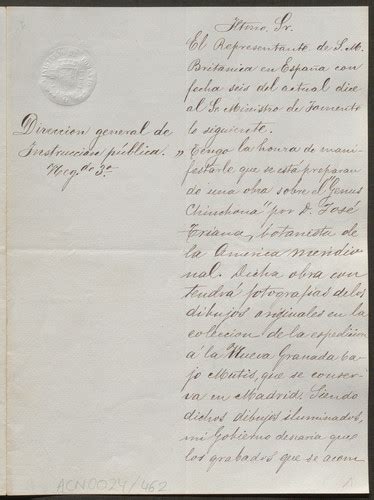 Iltmo. Sr.
El Representante de S. M.
Británica en España con
fecha seis del actual dice
al Sr Ministro de Fomento
lo siguiente.
Direccion general de
Instruccion pública.
Neg.do 3.º
"Tengo la honra de mani-
festarle que se está preparan
do una obra sobre el "Genus
Chinchona" por D. José
Triana, botanista de
la America meridio
nal. Dicha obra con
tendrá fotografias de los
dibujos originales en la
coleccion de la espedicion
á la Nueva Granada ba-
jo Mutis, que se conser-
va en Madrid. Siendo
dichos dibujos iluminados,
mi Gobierno desearia que
los grabados que se acom
ACN0024/462
1